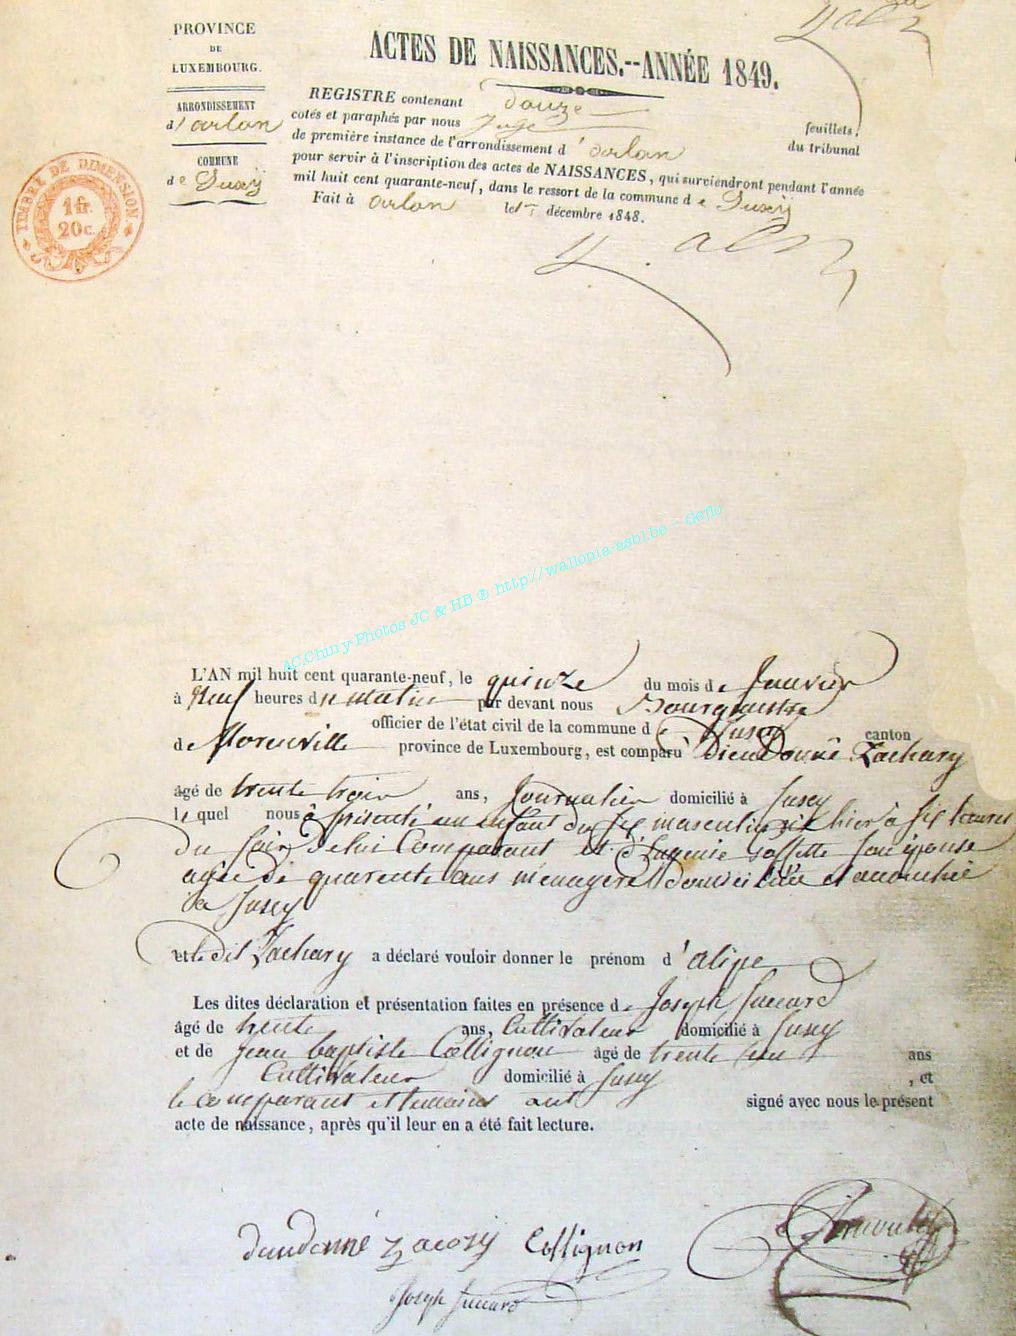 PROVINCE
DE
LUXEMBOURG.
ARRONDISSEMENT
d'arlon
COMMUNE
de Suxÿ
TIMBRE DE DIMENSION.
1 fr.
20 c.
ACTES DE NAISSANCES.--ANNÉE 1849.
REGISTRE contenant douze feuillets,
cotés et paraphés par nous Juge du tribunal
de première instance de l'arrondissement d'arlon
pour servir à l'inscription des actes de NAISSANCES, qui surviendront pendant l'année
mil huit cent quarante-neuf, dans le ressort de la commune de Suxÿ
Fait à arlon le 1er décembre 1848.
AC.Chiny-Photos JC & HB ® http://wallonia-asbl.be - Geflo
L'AN mil huit cent quarante-neuf, le quinze du mois de Janvier
à Neuf heures du matin par devant nous Bourgmestre
officier de l'état civil de la commune de Suxy canton
de florenville province de Luxembourg, est comparu Dieudonné Zachary
âgé de trente trois ans, Journalier domicilié à Suxy
lequel nous à présenté un enfant du sex masculin né hier à six heures
du soir de lui Comparant et d'Eugenie Goffette son épouse
agée de quarente ans menagere domiciliée et accouchée
à Suxy
et le dit Zachary a déclaré vouloir donner le prénom d'alipe
Les dites déclaration et présentation faites en présence de Joseph Suzard
âgé de trente ans, Cultivateur domicilié à Suxy
et de Jean baptiste Collignon âgé de trente ans
Cultivateur domicilié à Suxy, et
le comparant et temoins ont signé avec nous le présent
acte de naissance, après qu'il leur en a été fait lecture.
Collignon
Joseph